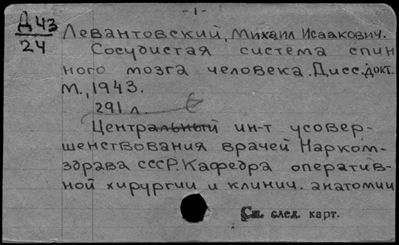 - 1 -
Д 43
24
Левантовский, Михаил Исаакович.
Сосудистая система спин
ного мозга человека. Дисс. докт.
М., 1943.
291 л
Центральный ин-т усовер-
шенствования врачей Нарком-
здрава СССР. Кафедра оператив-
ной хирургии и клинич. анатомии
См. след. карт.